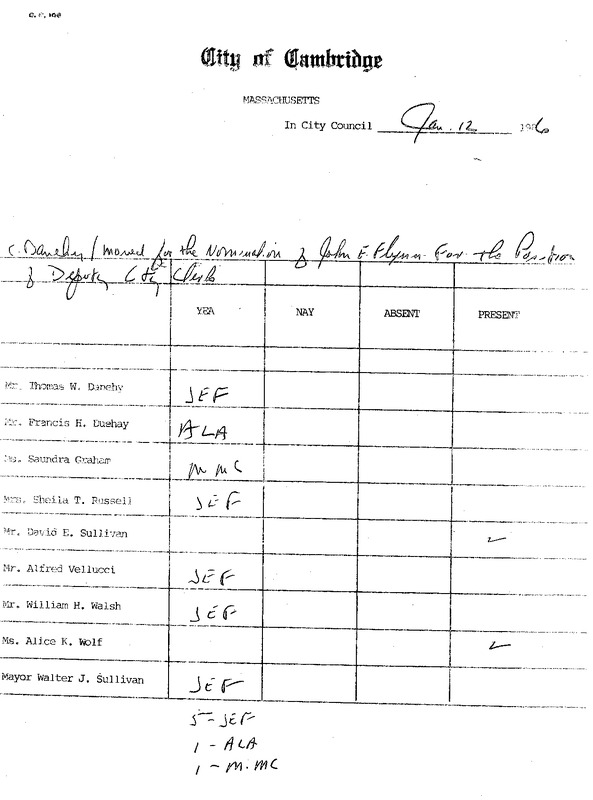 C.C. 106
City of Cambridge
MASSACHUSETTS
In City Council Jan. 12 1986
C. Danehy / moved for the Nomination of John E. Flynn For the Position
of Deputy City Clerk
YEA NAY ABSENT PRESENT
Mr. Thomas W. Danehy JEF
Mr. Francis H. Duehay ALA
Ms. Saundra Graham M MC
Mrs. Sheila T. Russell JEF
Mr. David E. Sullivan ✓
Mr. Alfred Vellucci JEF
Mr. William H. Walsh JEF
Ms. Alice K. Wolf ✓
Mayor Walter J. Sullivan JEF
5 - JEF
1 - ALA
1 - M. MC